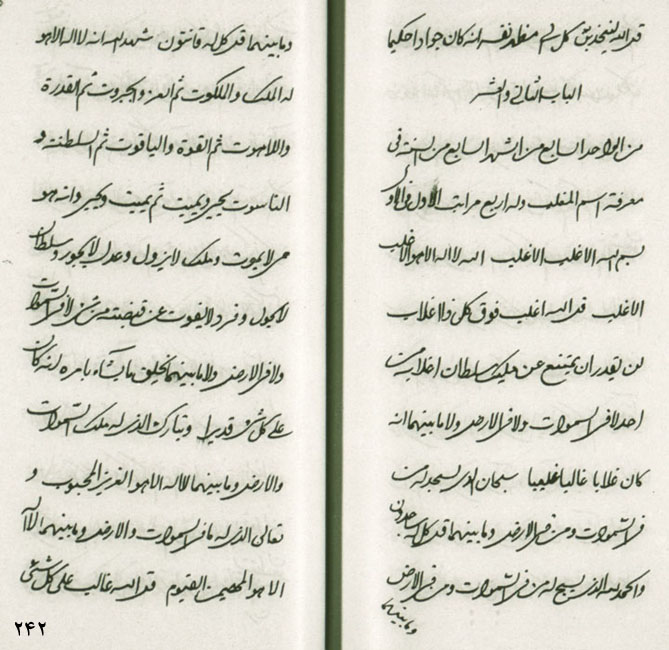 قد الله ليتخذن كل شیء مظهر نفسه انه كان جوادا حكيما
الباب الثانی والعشر
من الواحد السابع من الشهر السابع من السنة فی
معرفة اسم المغلب وله اربع مراتب الاول فی الاول
بسم الله الاغلب الاغلب الله لا اله الا هو الاغلب
الاغلب قل الله اغلب فوق كل ذا اغلاب
لن يقدر ان يمتنع عن مليك سلطان اغلابه من
احد لا فی السموات ولا فی الارض ولا ما بينهما انه
كان غلابا غالبا غليبا سبحان الذی يسجد له من
فی السموات ومن فی الارض وما بينهما قل كل له ساجدون
والحمد لله الذی يسبح له من فی السموات ومن فی الارض
وما بينهما
وما بينهما قل كل له قانتون شهد الله انه لا اله الا هو
له الملك والملكوت ثم العز والجبروت ثم القدرة
واللاهوت ثم القوة والياقوت ثم السلطنة و
الناسوت يحيی ويميت ثم يميت ويحيی وانه هو
حی لا يموت وملك لا يزول وعدل لا يجور وسلطان
لا يحول وفرد لا يفوت عن قبضته من شیء لا فی السموات
ولا فی الارض ولا ما بينهما يخلق ما يشاء بامره انه كان
علی كل شیء قديرا وتبارك الذی له ملك السموات
والارض وما بينهما لا اله الا هو العزيز المحبوب و
تعالی الذی له ما فی السموات والارض وما بينهما لا اله
الا هو المهيمن القيوم قل الله غالب علی كل شیء
۲۴۲